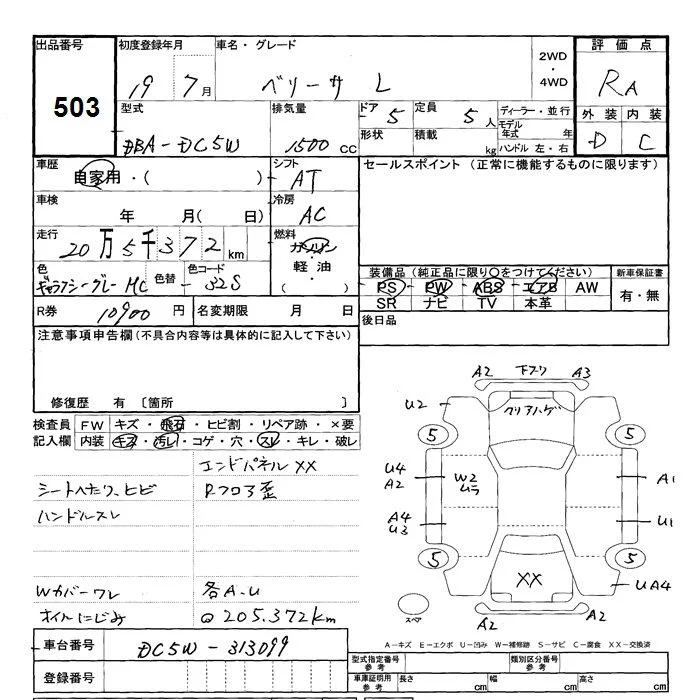 出品番号 初度登録年月 車名・グレード 評価点
503
19 7月 ベリーサ L 2WD・4WD RA
外装 内装
D C
型式 排気量 ドア 5 定員 5人 ディーラー・並行
DBA-DC5W 1500cc 形状 積載 kg モデル年式 年
ハンドル 左・右
車歴 シフト セールスポイント (正常に機能するものに限ります)
自家用・( ) AT
車検 冷房
年 月( 日) AC
走行 燃料
20万5千372km ガソリン・軽油・
色 色替 色コード
ギャラクシーグレーMC 32S
装備品 (純正品に限り○をつけてください) 新車保証書
PS PW ABS エアB AW 有・無
SR ナビ TV 本革
R券 10900円 名変期限 月 日
後日品
注意事項申告欄(不具合内容等は具体的に記入して下さい)
修復歴 有 〔箇所 〕
検査員 FW キズ・飛石・ヒビ割・リペア跡・×要
記入欄 内装 キズ・汚レ・コゲ・穴・スレ・キレ・破レ
エンドパネルXX
シートへたり、ヒビ Rフロア歪
ハンドルスレ
Wカバーワレ 各A.U
オイルにじみ 205.372km
A2 下フワ A3
U2 クリアハゲ
5 5
U4 A2 W2 ムラ A1
A4 U3 U1
5 5
XX UA4
スペア A2 A2
A-キズ E-エクボ U-凹み W-補修跡 S-サビ C-腐食 XX-交換済
車台番号 DC5W-313099
型式指定番号 参考 類別区分番号 参考
登録番号
車庫証明用 参考 長さ cm 幅 cm 高さ cm